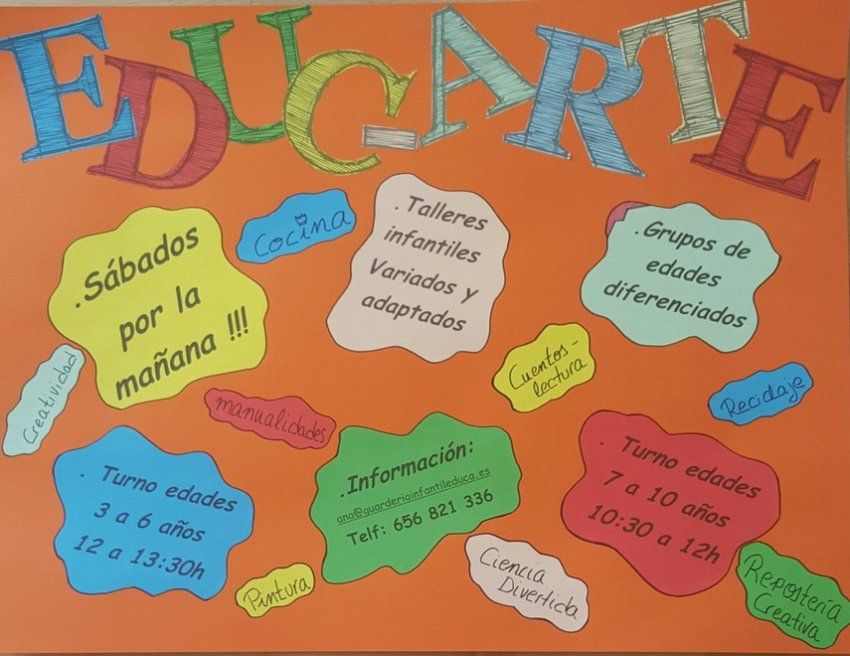 EDUC-ARTE
.Sábados
por la
mañana !!!
Cocina
.Talleres
infantiles
Variados y
adaptados
.Grupos de
edades
diferenciados
Creatividad
manualidades
Cuentos-
lectura
Reciclaje
. Turno edades
3 a 6 años
12 a 13:30h
.Información:
ana@guarderiainfantileduca.es
Telf: 656 821 336
. Turno edades
7 a 10 años
10:30 a 12h
Pintura
Ciencia
Divertida
Repostería
Creativa